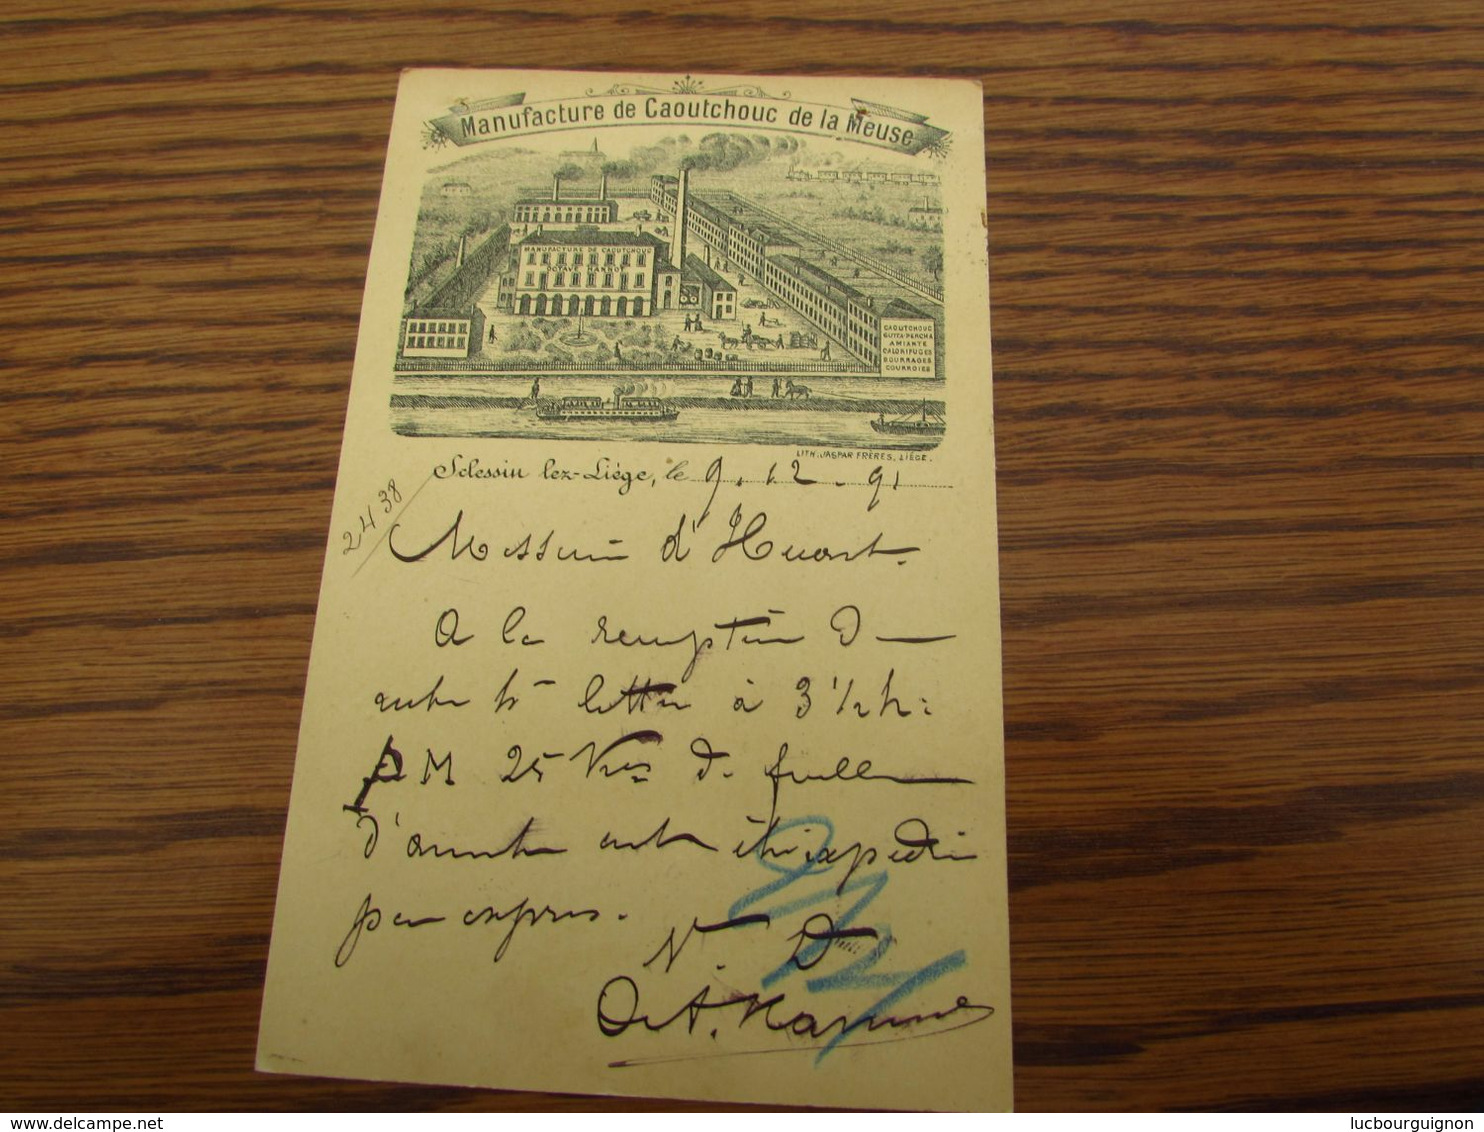 Manufacture de Caoutchouc de la Meuse
MANUFACTURE DE CAOUTCHOUC
OCTAVE
CAOUTCHOUC
GUTTA-PERCHA
AMIANTE
CALORIFUGES
BOURRAGES
COURROIES
LITH. JASPAR FRÈRES, LIÉGE.
Sclessin lez-Liége, le 9.12.91
2438
Messieurs d'Huart.
A la réception de
votre lettre à 3 1/2 h:
PM 25 de feuille
d'amiante ont été expédiés
par express.
N. D
Oct.
delcampe.net
lucbourguignon